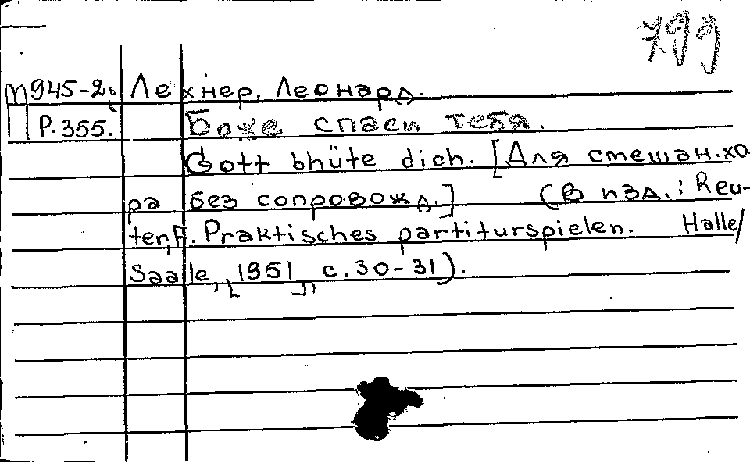 799
М945-2. Лехнер, Леонард.
Р.355. Боже спаси тебя.
Gott bhüte dich. [Для смешан.хо
ра без сопровожд.] (В изд.: Reu-
ter,F. Praktisches partiturspielen. Halle/
Saale, [1951], с.30-31).